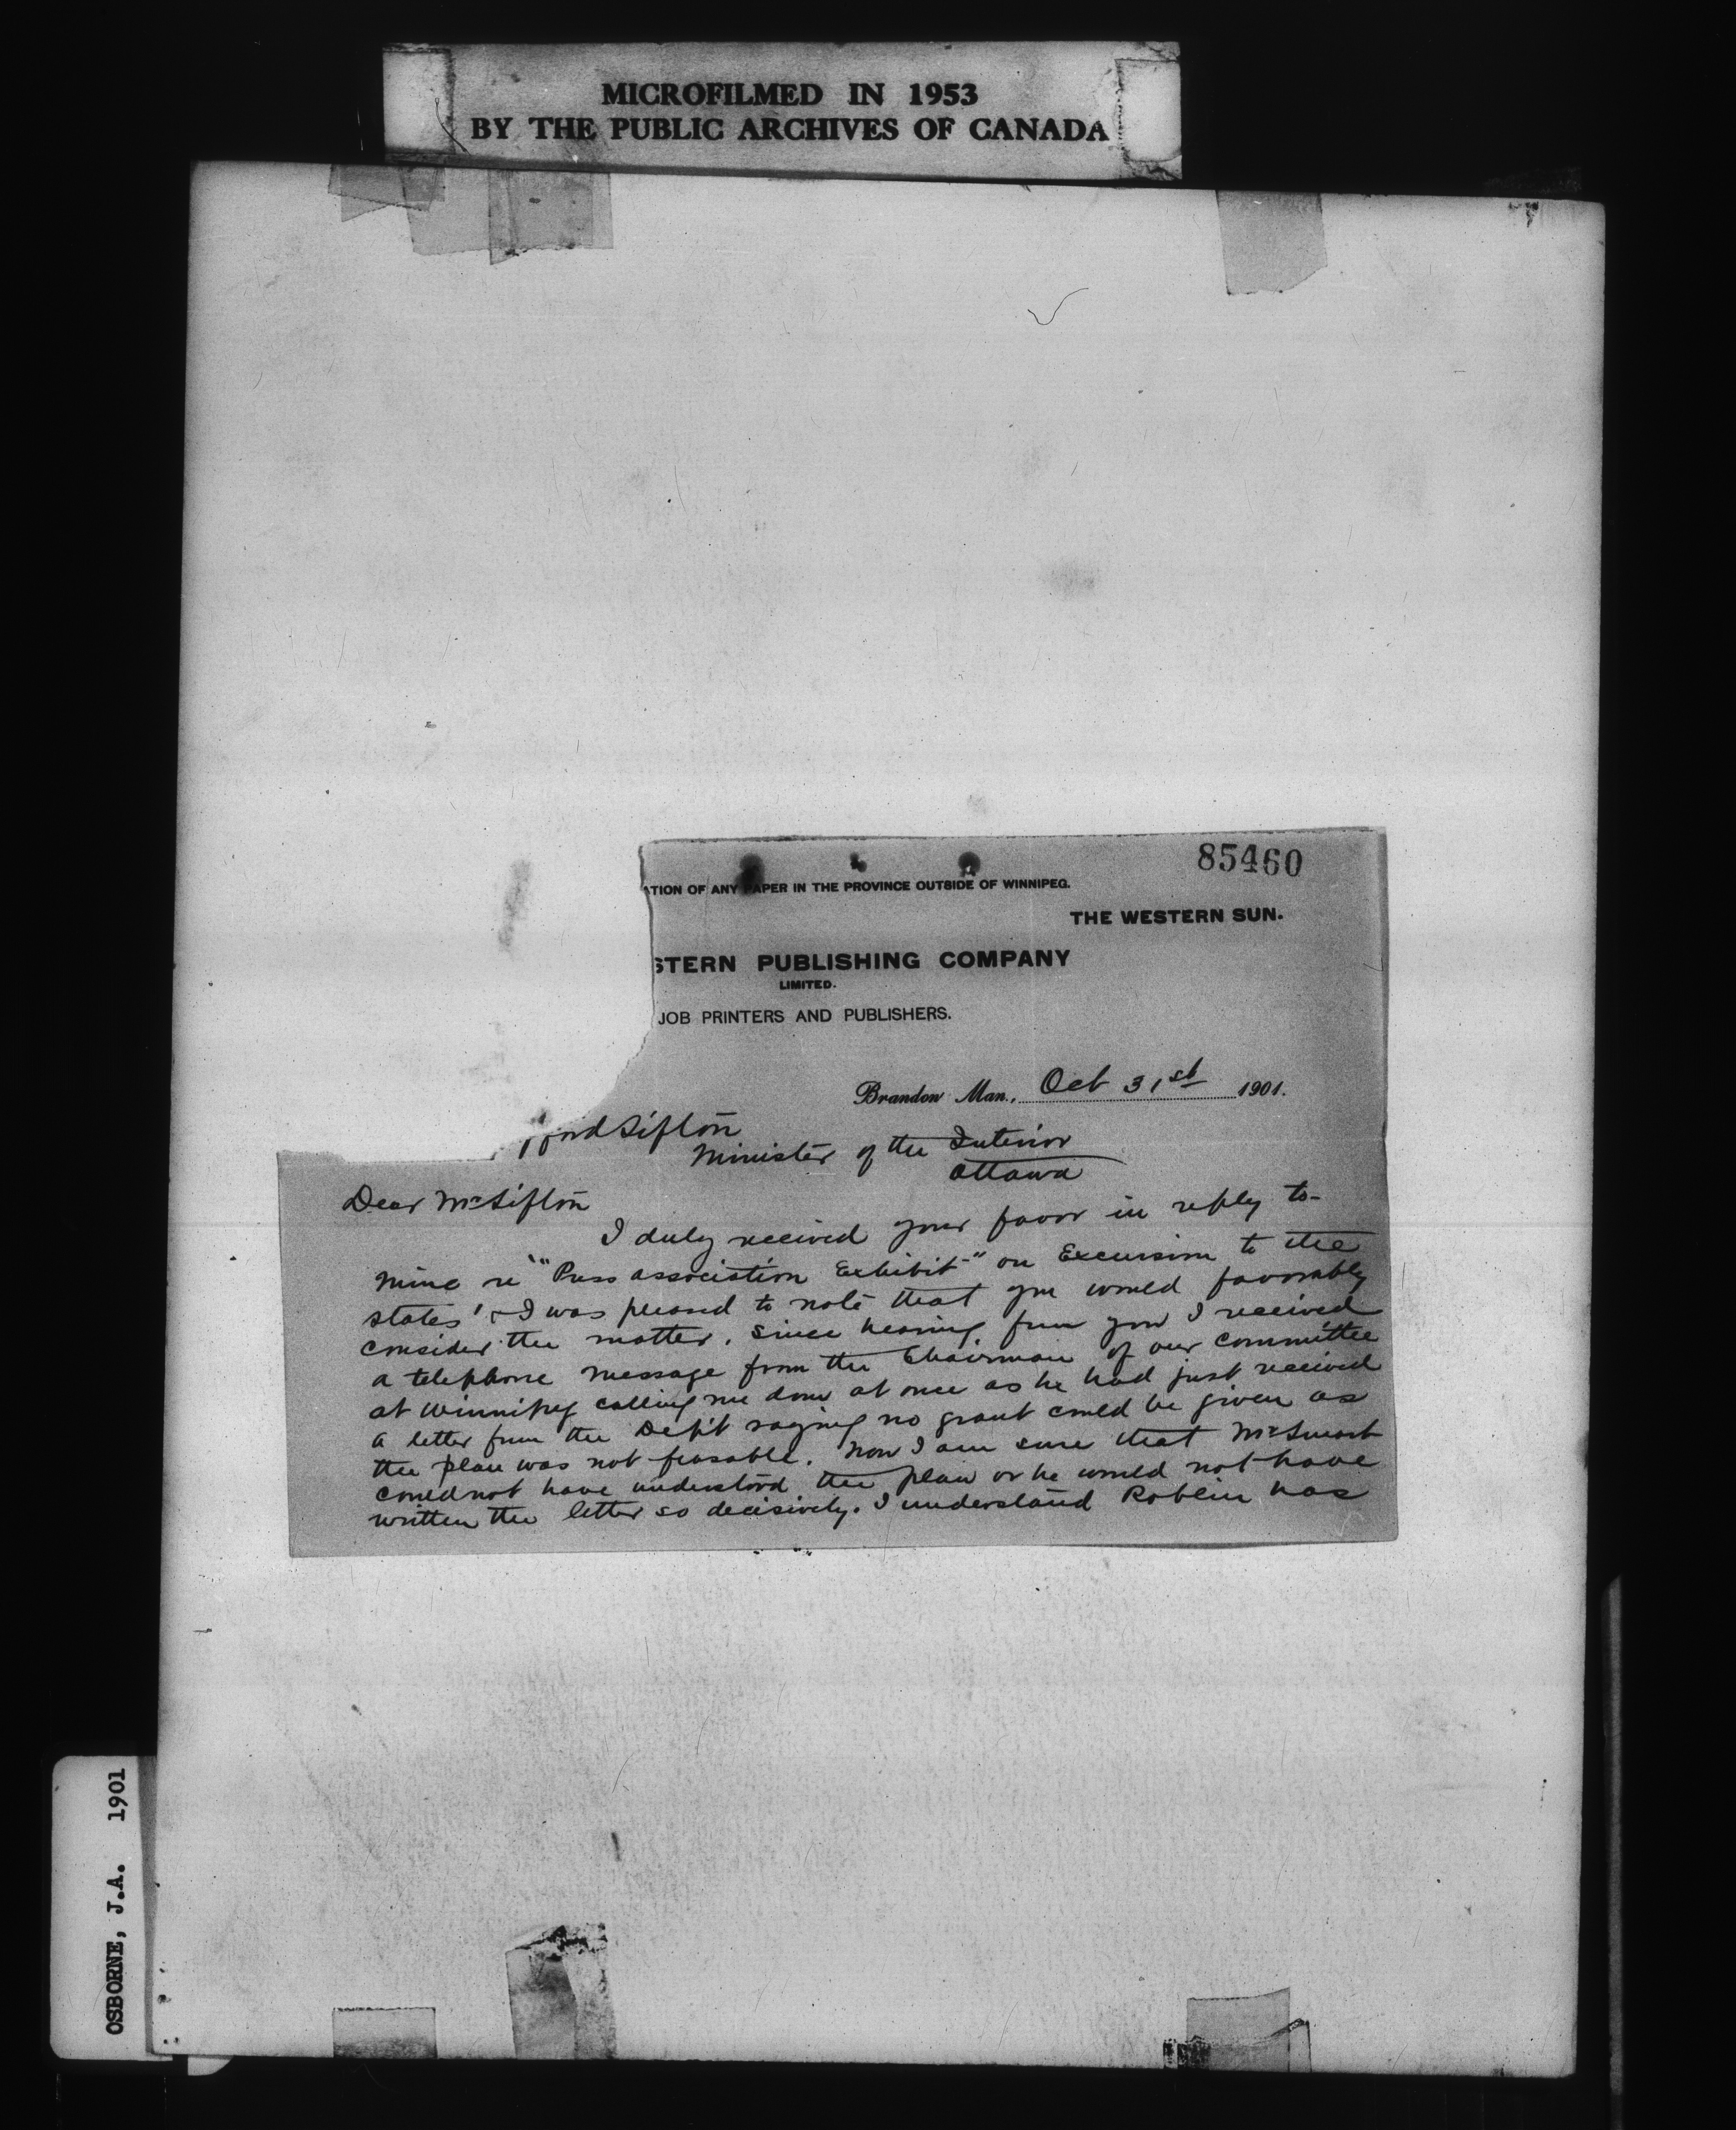 MICROFILMED IN 1953
BY THE PUBLIC ARCHIVES OF CANADA
85460
ATION OF ANY PAPER IN THE PROVINCE OUTSIDE OF WINNIPEG.
THE WESTERN SUN.
STERN PUBLISHING COMPANY
LIMITED.
JOB PRINTERS AND PUBLISHERS.
Brandon Man., Oct 31st 1901.
fford Sifton
Minister of the Interior
Ottawa
Dear Mr Sifton
I duly received your favor in reply to
mine re "Press association Exhibit" on Excursion to the
states' & I was pleased to note that you would favorably
consider the matter. Since hearing from you I received
a telephone message from the Chairman of our committee
at Winnipeg calling me down at once as he had just received
a letter from the Dep't saying no grant could be given as
the plan was not feasable. Now I am sure that Mr Smart
could not have understood the plan or he would not have
written the letter so decisively. I understand Roblin has
OSBORNE, J.A. 1901